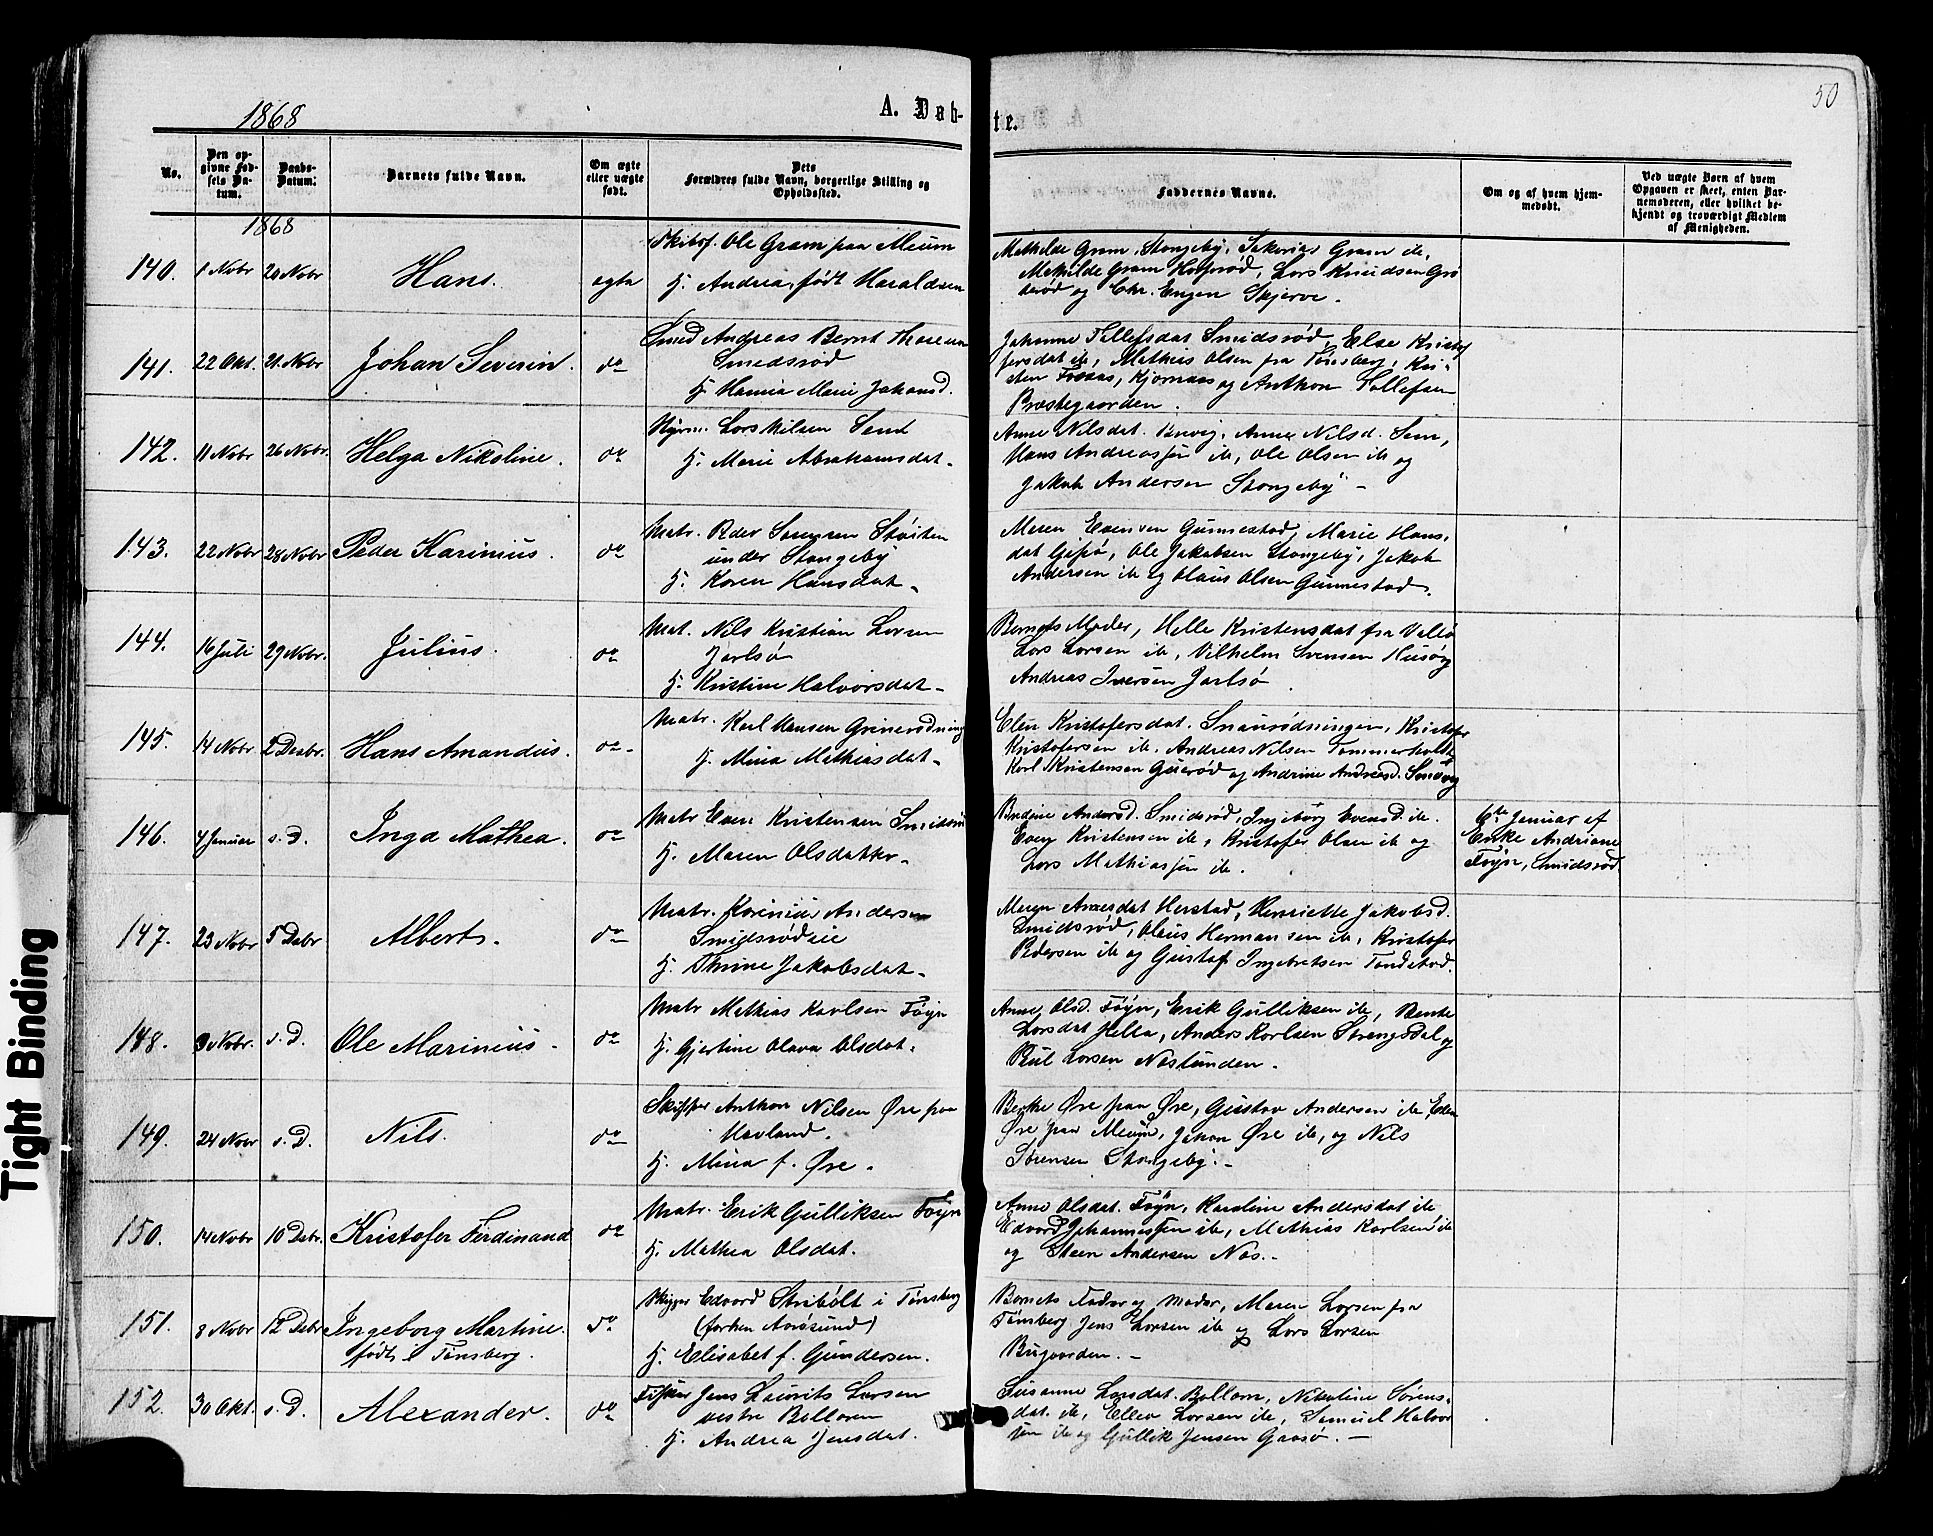 50
1868
A. Døb-
te.
No.
Den op-
givne Fød-
sels Da-
tum.
Daabs-
Datum.
Barnets fulde Navn.
Om ægte
eller uægte
født.
Dets
Forældres fulde Navn, borgerlige Stilling og
Opholdssted.
Faddernes Navne.
Om og af hvem hjem-
medøbt.
Ved uægte Børn af hvem
Opgaven er skeet, enten Bar-
nemoderen, eller hvilket be-
kjendt og troværdigt Medlem
af Menigheden.
1868
140. 1 Nobr 20 Nobr Hans. egte
Ole Gram paa Meum
H. Andrea, født Haraldsen
Mathilde Gram, Stangeby, Sakarias Gram ib,
Mathilde Gram Hafsrød, Lars Knudsen Gre
terød og Chr. Engen Skjerve.
141. 22 Okt. 21 Nobr Johan Severin. do
Smed Andreas Bernt
Smedsrød
H. Hanna Marie Johansd.
Johanne Tollefsdat Smidsrød, Else Kristof
fersdat ib, Mathis Olsen fra Tønsberg, Kri-
sten Kjørnaas og Anthon Tollefsen
Præstegaarden.
142. 11 Nobr 26 Nobr. Helga Nikoline. do
Styrm. Lars Nilsen Sem
H. Marie Abrahamsdat.
Anne Nilsdat. Anne Nilsd. Sem,
Hans Andreassen ib, Ole Olsen ib og
Jakob Andersen Stangeby -
143. 22 Nobr 28 Nobr Peder Karinius. do
Matr. Peder Sørensen Støiten
under Stangeby
H. Karen Hansdat.
Maren Evensen Gunnestad, Marie Hans-
dat Gipø, Ole Jakobsen Stangeby, Jakob
Andersen ib og Olaus Olsen Gunnestad.
144. 16 Juli 29 Nobr. Julius. do
Mat. Nils Kristian Larsen
Jarlsø
H. Kristine Halvorsdat
Barnets Moder, Helle Kristensdat fra Valø
Lars Larsen ib, Vilhelm Svensen Husø og
Andreas Iversen Jarlsø.
145. 14 Nobr. 2 Desbr. Hans Amandus. do
Matr. Karl Hansen Grinerødning
H. Mina Mathiasdat
Elen Kristofersdat. Snaurødningen, Kristofer
Kristofersen ib. Andreas Nilsen Tømmerholt
Karl Kristensen Guerød og Andrine Andreasd. Smevig
146. 4 Januar s. D. Inga Mathea. do
Matr Even Kristensen Smidsrød
H. Maren Olsdatter
Bendine Andersd. Smidsrød, Ingeborg Evensd. ib.
Even Kristensen ib, Kristofer Olsen ib og
Lars Mathiassen ib.
6te Januar af
Enke Andriane
Føyn, Smidsrød.
147. 23 Nobr 5 Debr Albert. do
Matr. Karinius Andersen
Smidsrødeie
H. Thrine Jakobsdat
Maren Herstad, Henriette Jakobsd.
Smidsrød, Olaus Hermansen ib, Kristofer
Pedersen ib og Gustaf Ingebretsen Tandstad.
148. 3 Nobr. s. D. Ole Marinius. do
Matr Mathias Karlsen Føyn
H. Gjertine Olava Olsdat.
Anne Olsd. Føyn, Erik Gulliksen ib, Bente
Larsdat Hella, Anders Karlsen Strengsdal og
Paul Larsen Nøstunden.
149. 24 Nobr s. D. Nils. do
Skipper Anthon Nilsen Øre paa
Havland.
H. Mina f. Øre.
Berthe Øre paa Øre, Gustav Andersen ib
Øre paa Meum, Johan Øre ib, og Nils
Sørensen Stangeby. -
150. 14 Nobr 10 Debr. Kristofer Ferdinand do
Matr. Erik Gulliksen Føyn
H. Mathea Olsdat.
Anne Olsdat. Føyn, Karoline Andersdat ib
Edvard Johannessen ib, Mathias Karlsen ib
og Steen Andersen Nøs. -
151. 8 Nobr 12 Debr Ingeborg Martine.
født i Tønsberg. do
Skipper Edvard Stribolt i Tønsberg
(forhen Aarøsund)
H. Elisabet f. Gundersen.
Barnets Fader og Moder, Maren Larsen fra
Tønsberg Jens Larsen ib og Lars Larsen
Bugaarden. -
152. 30 Okt. s. D. Alexander. do
Fisker Jens Laurits Larsen
vestre Bolæren
H. Andrea Jensdat.
Susanne Larsdat. Bollærn, Nikoline Sørens-
dat. ib, Ellev Larsen ib, Samuel Halvor
sen ib og Gullik Jensen Gaasø. -
Tight Binding